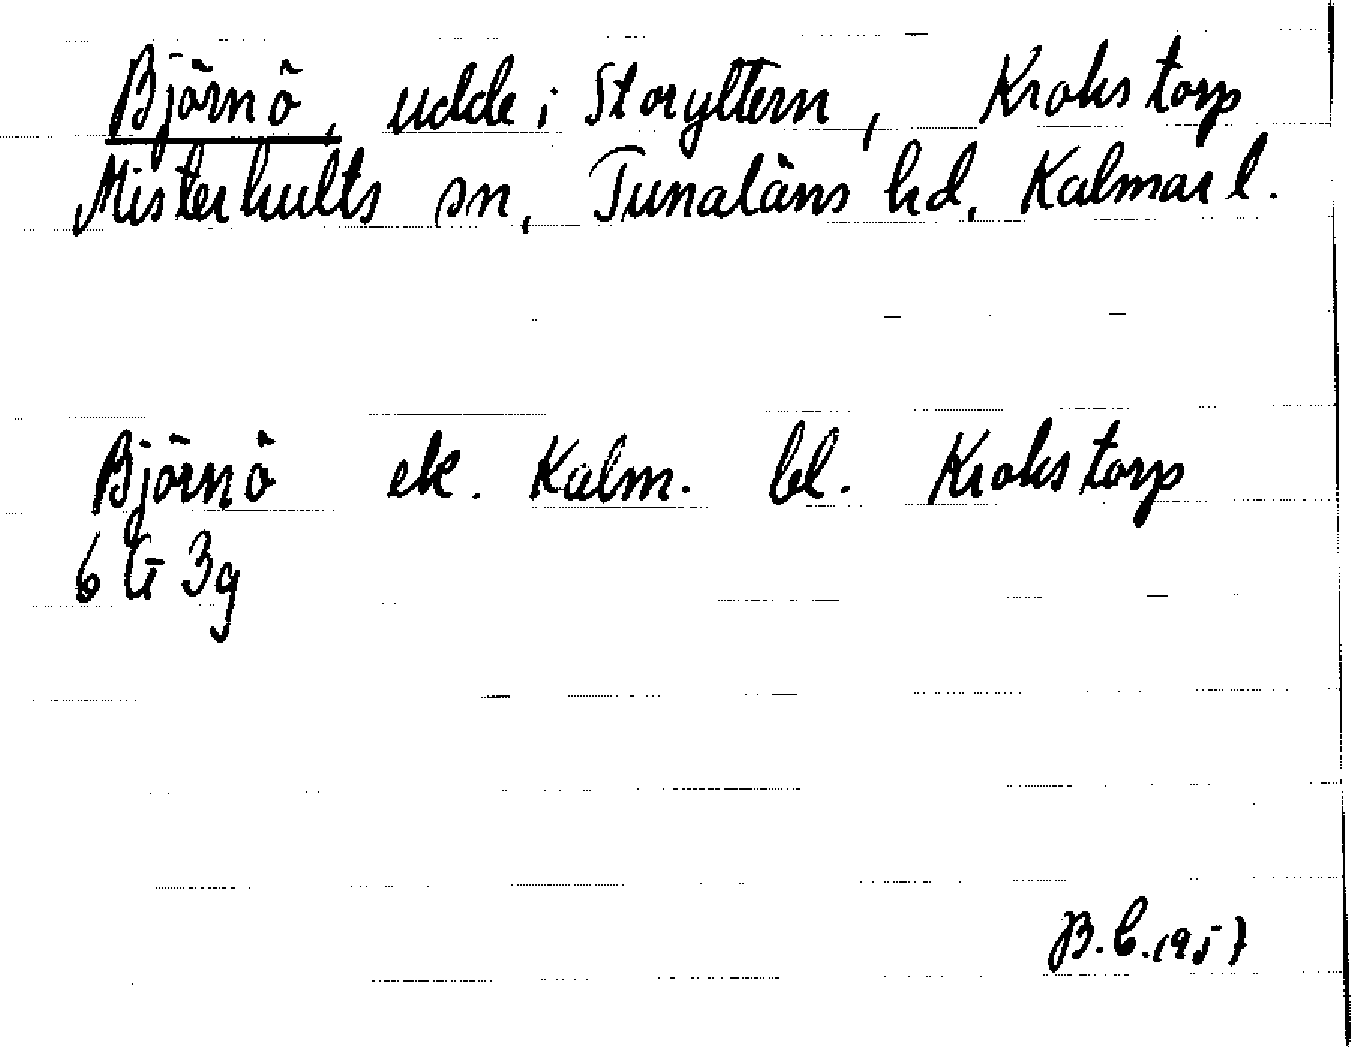 Björnö, udde i Storyltern, Krokstorp
Misterhults sn, Tunaläns hd, Kalmar l.
Björnö ek. Kalm. bl. Krokstorp
6 G 3g
B.C. 1957